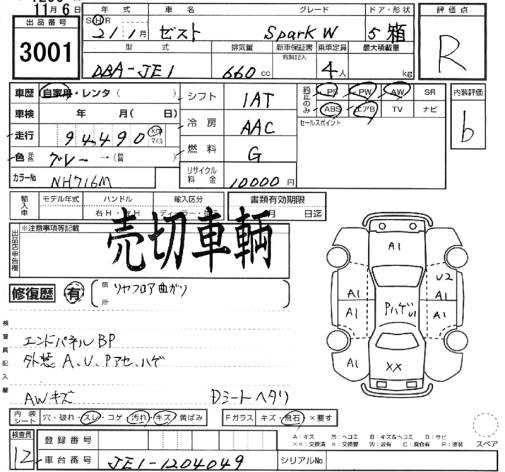 11月6日
出品番号
3001
年式 車名 グレード ドア・形状
21/1月 ゼスト Spark W 5 箱
型式 排気量 新車保証書 乗車定員 最大積載量
有無記入
DBA-JE1 660cc 4人 kg
評価点
R
車歴 自家用・レンタ( )
車検 年 月( 日)
走行 94,490 km マイル
色 グレー →( )
カラーNo NH716M
シフト 1AT
冷房 AAC
燃料 G
リサイクル料金 10000円
純正のみ PS PW AW SR
ABS エアB TV ナビ
セールスポイント
内装評価
b
輸入車 モデル年式 ハンドル 輸入区分 書類有効期限
右H ディーラー 月 日迄
※注意事項等記載
出品店申告欄
売切車輌
修復歴 有 箇所 リヤフロア曲ガリ
検査員記入欄
エンドパネルBP
外装 A、U、Pアセ、ハゲ
AWキズ Dシートヘタリ
A1
U2
A1 A1
A1 A1
PハゲU1
XX
内装シート 穴・破れ・スレ・コゲ・汚れ・キズ・黄ばみ Fガラス キズ・飛石・×要す
検査員
12
登録番号
車台番号 JE1-1204049 シリアルNo
A:キズ U:ヘコミ B:キズ&ヘコミ S:サビ
XX:交換済 X:要交換 W:波有 C:腐食有 P:塗装
スペア